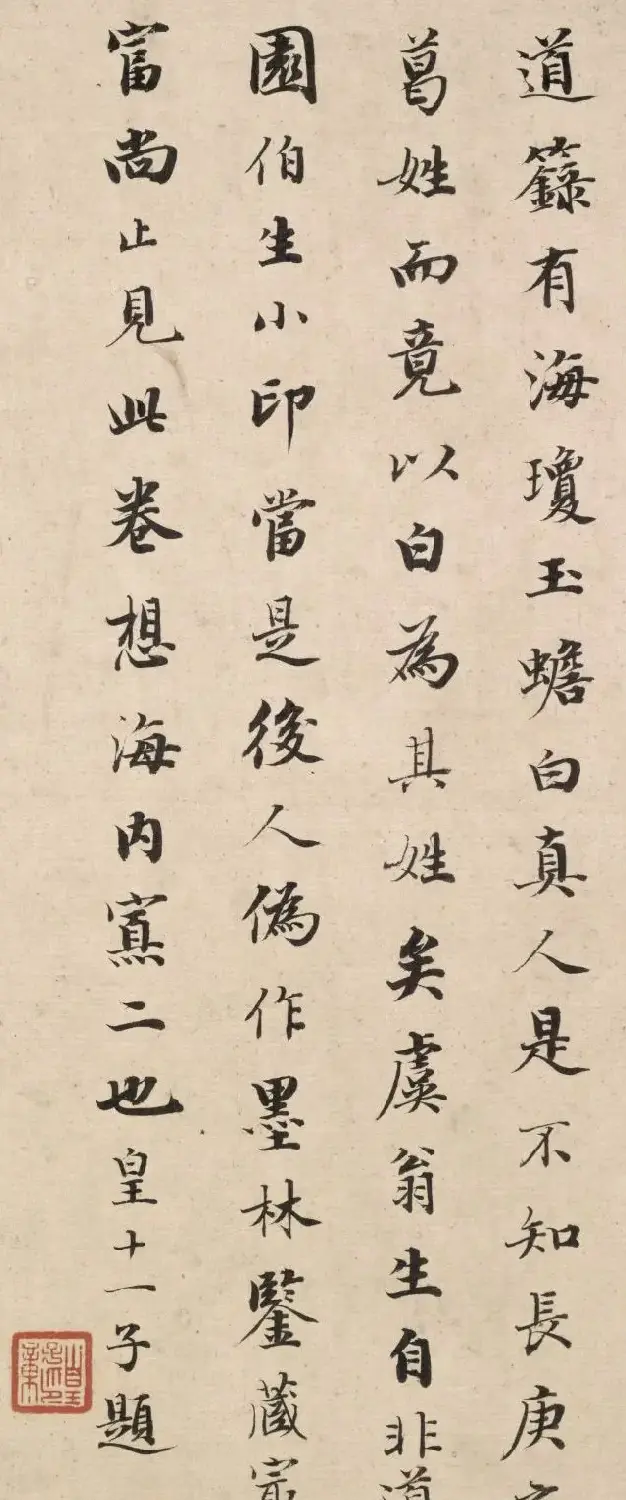 道籙有海瓊玉蟾白真人是不知長庚
葛姓而竟以白為其姓矣虞翁生自非道
園伯生小印當是後人偽作墨林鑒藏
富尚止見此卷想海内寡二也皇十一子題